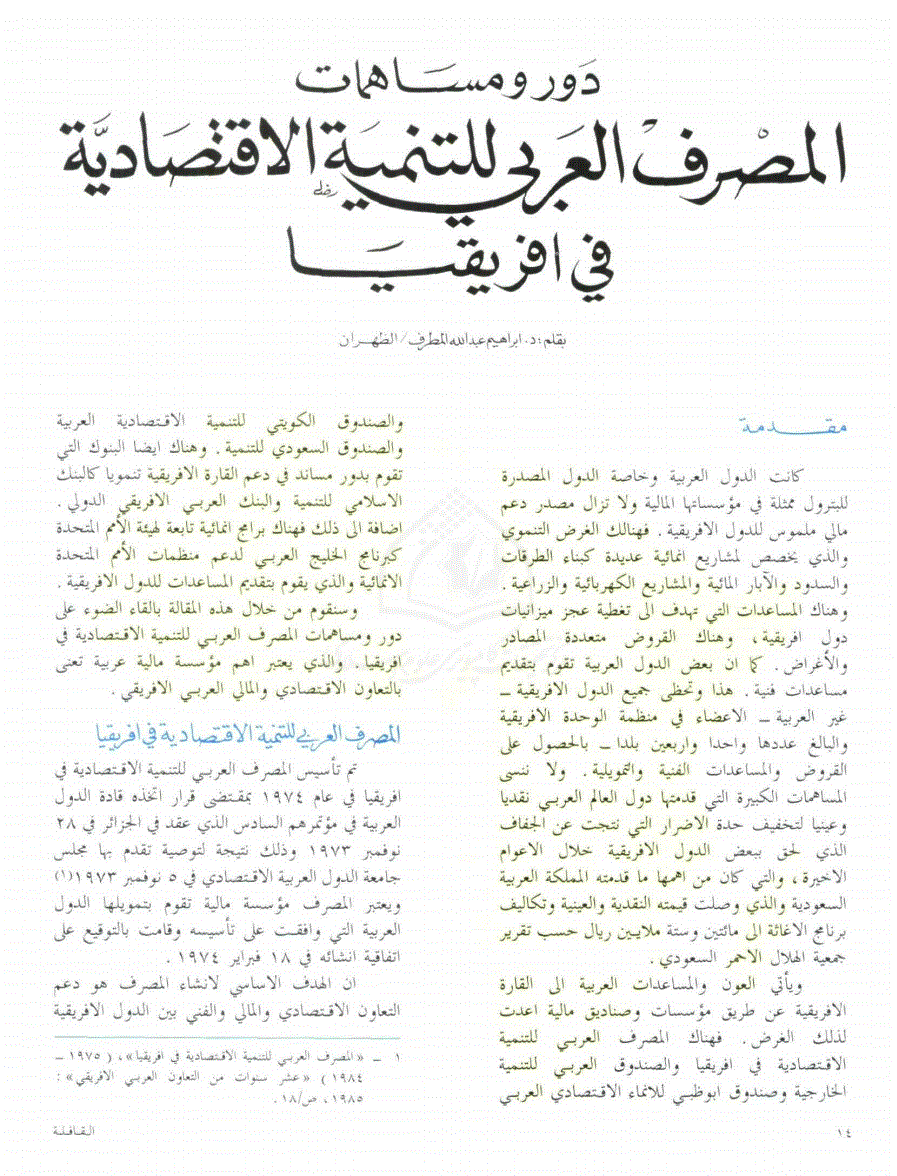 دور ومساهمات
المصرف العربي للتنمية الاقتصادية
في افريقيا
بقلم: د. ابراهيم عبدالله المطرف / الظهران
مقدمة
كانت الدول العربية وخاصة الدول المصدرة
للبترول ممثلة في مؤسساتها المالية ولا تزال مصدر دعم
مالي ملموس للدول الافريقية . فهنالك الغرض التنموي
والذي يخصص لمشاريع انمائية عديدة كبناء الطرقات
والسدود والآبار المائية والمشاريع الكهربائية والزراعية .
وهناك المساعدات التي تهدف الى تغطية عجز ميزانيات
دول افريقية ، وهناك القروض متعددة المصادر
والأغراض . كما ان بعض الدول العربية تقوم بتقديم
مساعدات فنية . هذا وتحظى جميع الدول الافريقية ــ
غير العربية ــ الاعضاء في منظمة الوحدة الافريقية
والبالغ عددها واحدا واربعين بلدا ــ بالحصول على
القروض والمساعدات الفنية والتمويلية . ولا ننسى
المساهمات الكبيرة التي قدمتها دول العالم العربي نقديا
وعينيا لتخفيف حدة الاضرار التي نتجت عن الجفاف
الذي لحق ببعض الدول الافريقية خلال الاعوام
الاخيرة ، والتي كان من اهمها ما قدمته المملكة العربية
السعودية والذي وصلت قيمته النقدية والعينية وتكاليف
برنامج الاغاثة الى مائتين وستة ملايين ريال حسب تقرير
جمعية الهلال الاحمر السعودي .
ويأتي العون والمساعدات العربية الى القارة
الافريقية عن طريق مؤسسات وصناديق مالية اعدت
لذلك الغرض . فهناك المصرف العربي للتنمية
الاقتصادية في افريقيا والصندوق العربي للتنمية
الخارجية وصندوق ابوظبي للانماء الاقتصادي العربي
والصندوق الكويتي للتنمية الاقتصادية العربية
والصندوق السعودي للتنمية . وهناك ايضا البنوك التي
تقوم بدور مساند في دعم القارة الافريقية تنمويا كالبنك
الاسلامي للتنمية والبنك العربي الافريقي الدولي .
اضافة الى ذلك فهناك برامج انمائية تابعة لهيئة الأمم المتحدة
كبرنامج الخليج العربي لدعم منظمات الأمم المتحدة
الانمائية والذي يقوم بتقديم المساعدات للدول الافريقية .
وسنقوم من خلال هذه المقالة بالقاء الضوء على
دور ومساهمات المصرف العربي للتنمية الاقتصادية في
افريقيا . والذي يعتبر اهم مؤسسة مالية عربية تعنى
بالتعاون الاقتصادي والمالي العربي الافريقي .
المصرف العربي للتنمية الاقتصادية في افريقيا
تم تأسيس المصرف العربي للتنمية الاقتصادية في
افريقيا في عام ١٩٧٤ بمقتضى قرار اتخذه قادة الدول
العربية في مؤتمرهم السادس الذي عقد في الجزائر في ٢٨
نوفمبر ١٩٧٣ وذلك نتيجة لتوصية تقدم بها مجلس
جامعة الدول العربية الاقتصادي في ٥ نوفمبر ١٩٧٣(١)
ويعتبر المصرف مؤسسة مالية تقوم بتمويلها الدول
العربية التي وافقت على تأسيسه وقامت بالتوقيع على
اتفاقية انشائه في ١٨ فبراير ١٩٧٤ .
ان الهدف الاساسي لانشاء المصرف هو دعم
التعاون الاقتصادي والمالي والفني بين الدول الافريقية
١ ــ «المصرف العربي للتنمية الاقتصادية في افريقيا» ، ( ١٩٧٥ ــ
١٩٨٤ ) «عشر سنوات من التعاون العربي الافريقي» :
١٩٨٥ ، ص/١٨ .
١٤
القافلة